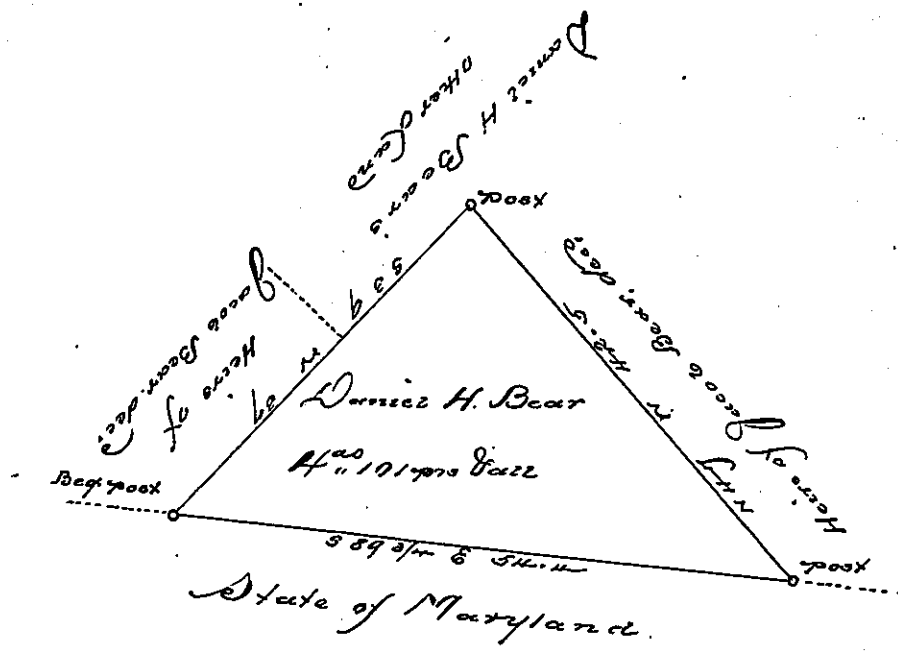 Daniel H Bear's
other Land
post
Heirs of
Jacob Bear, decd
Heirs of Jacob Bear, decd
S 39
W 39
N 47
W 42.5
Daniel H. Bear
4 as " 101 prs & all
Beg. post
S 89 3/4 E 54.4
post
State of Maryland.